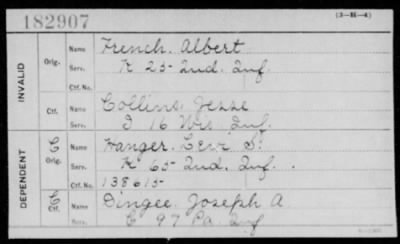 182907
(3-H-4)
INVALID
Orig.
Name French, Albert
Serv. K 25 Ind. Inf.
Ctf. No.
Ctf.
Name Collins, Jesse
Serv. I 16 Wis Inf.
DEPENDENT
C Orig.
Name Hanger, Levi S.
Serv. K 65 Ind. Inf.
Ctf. No. 138615
C Ctf.
Name Dingee, Joseph A
Serv. C 97 Pa. Inf